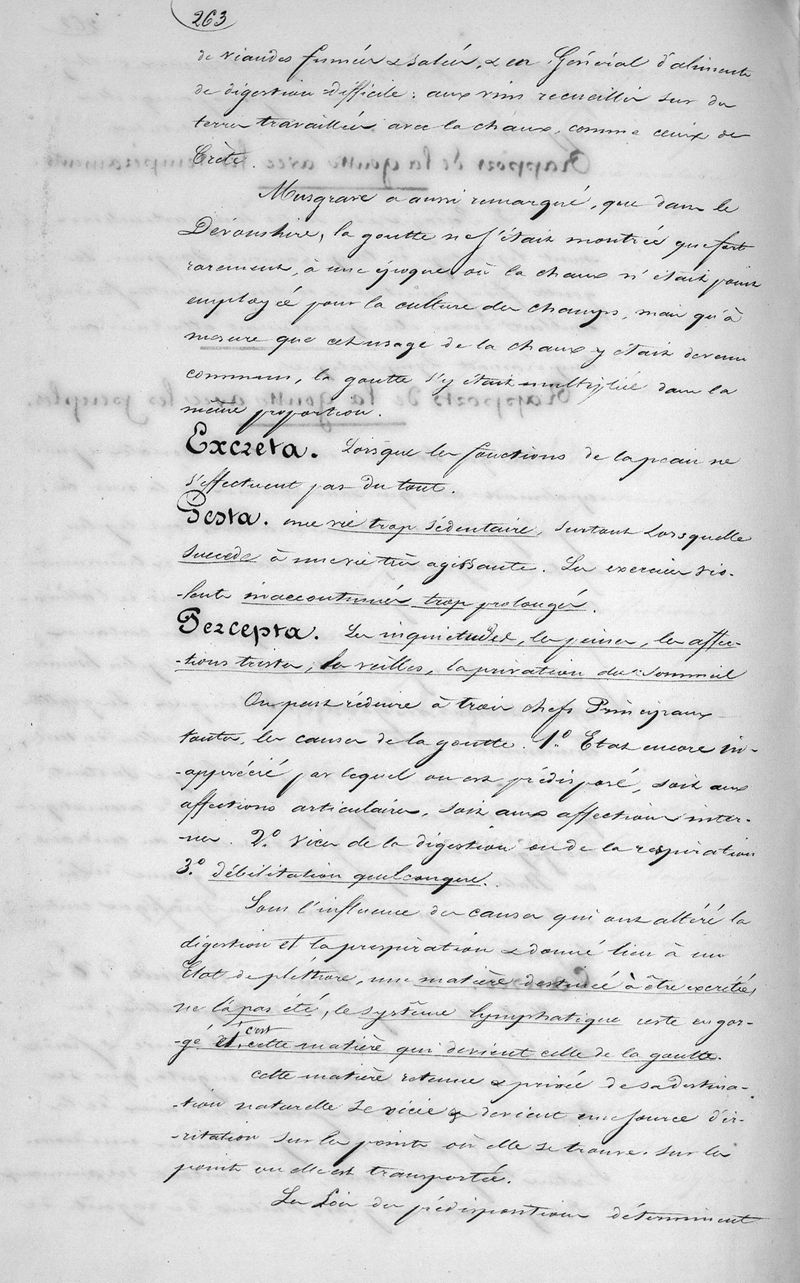 263
de viandes fumées & salées, & en Général d'aliments
de digestion difficile : aux vins recueillis sur des
terres travaillées avec la chaux, comme ceux de
Crète.
Musgrave a aussi remarqué, que dans le
Devonshire, la goutte ne s'était montrée que fort
rarement, à une époque où la chaux n'était point
employée pour la culture des champs, mais qu'à
mesure que cet usage de la chaux y était devenu
commun, la goutte s'y était multipliée dans la
même proportion.
Excreta. Lorsque les fonctions de la peau ne
s'effectuent pas du tout.
Gesta. une vie trop sédentaire, surtout lorsquelle
succede à une vie très agissante. Les exercices vio-
-lents inaccoutumés trop prolongés.
Percepta. Les inquietudes, les peines, les affec-
-tions tristes, les veilles, la privation du Sommeil
On peut réduire à trois chefs Principaux
toutes, les causes de la goutte. 1.° Etat encore in-
-apprécié par lequel on est prédisposé, soit aux
affections articulaires, soit aux affections inter-
-nes. 2.° vices de la digestion ou de la respiration
3.° débilitation quelconque.
Sous l'influence des causes qui ont altéré la
digestion et la prespiration & donné lieu à un
Etat de pléthore, une matière destinée à être excrétée,
ne l'a pas été, le système lymphatique reste engor-
-gé et, c'est cette matière qui devient celle de la goutte.
Cette matière retenue & privée de sa destina-
-tion naturelle se vicie & devient une source d'ir-
-ritation sur les points où elle se trouve, sur les
points ou elle est transportée.
Les Lois des prédispositions déterminent